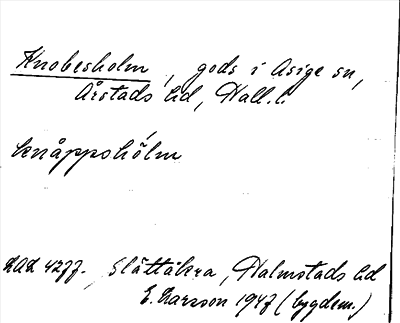 Knobesholm, gods i Asige sn,
Årstads hd, Hall. l.
knåppshólm
Slättåkra, Halmstads hd
E. Larsson 1947 (bygdem.)